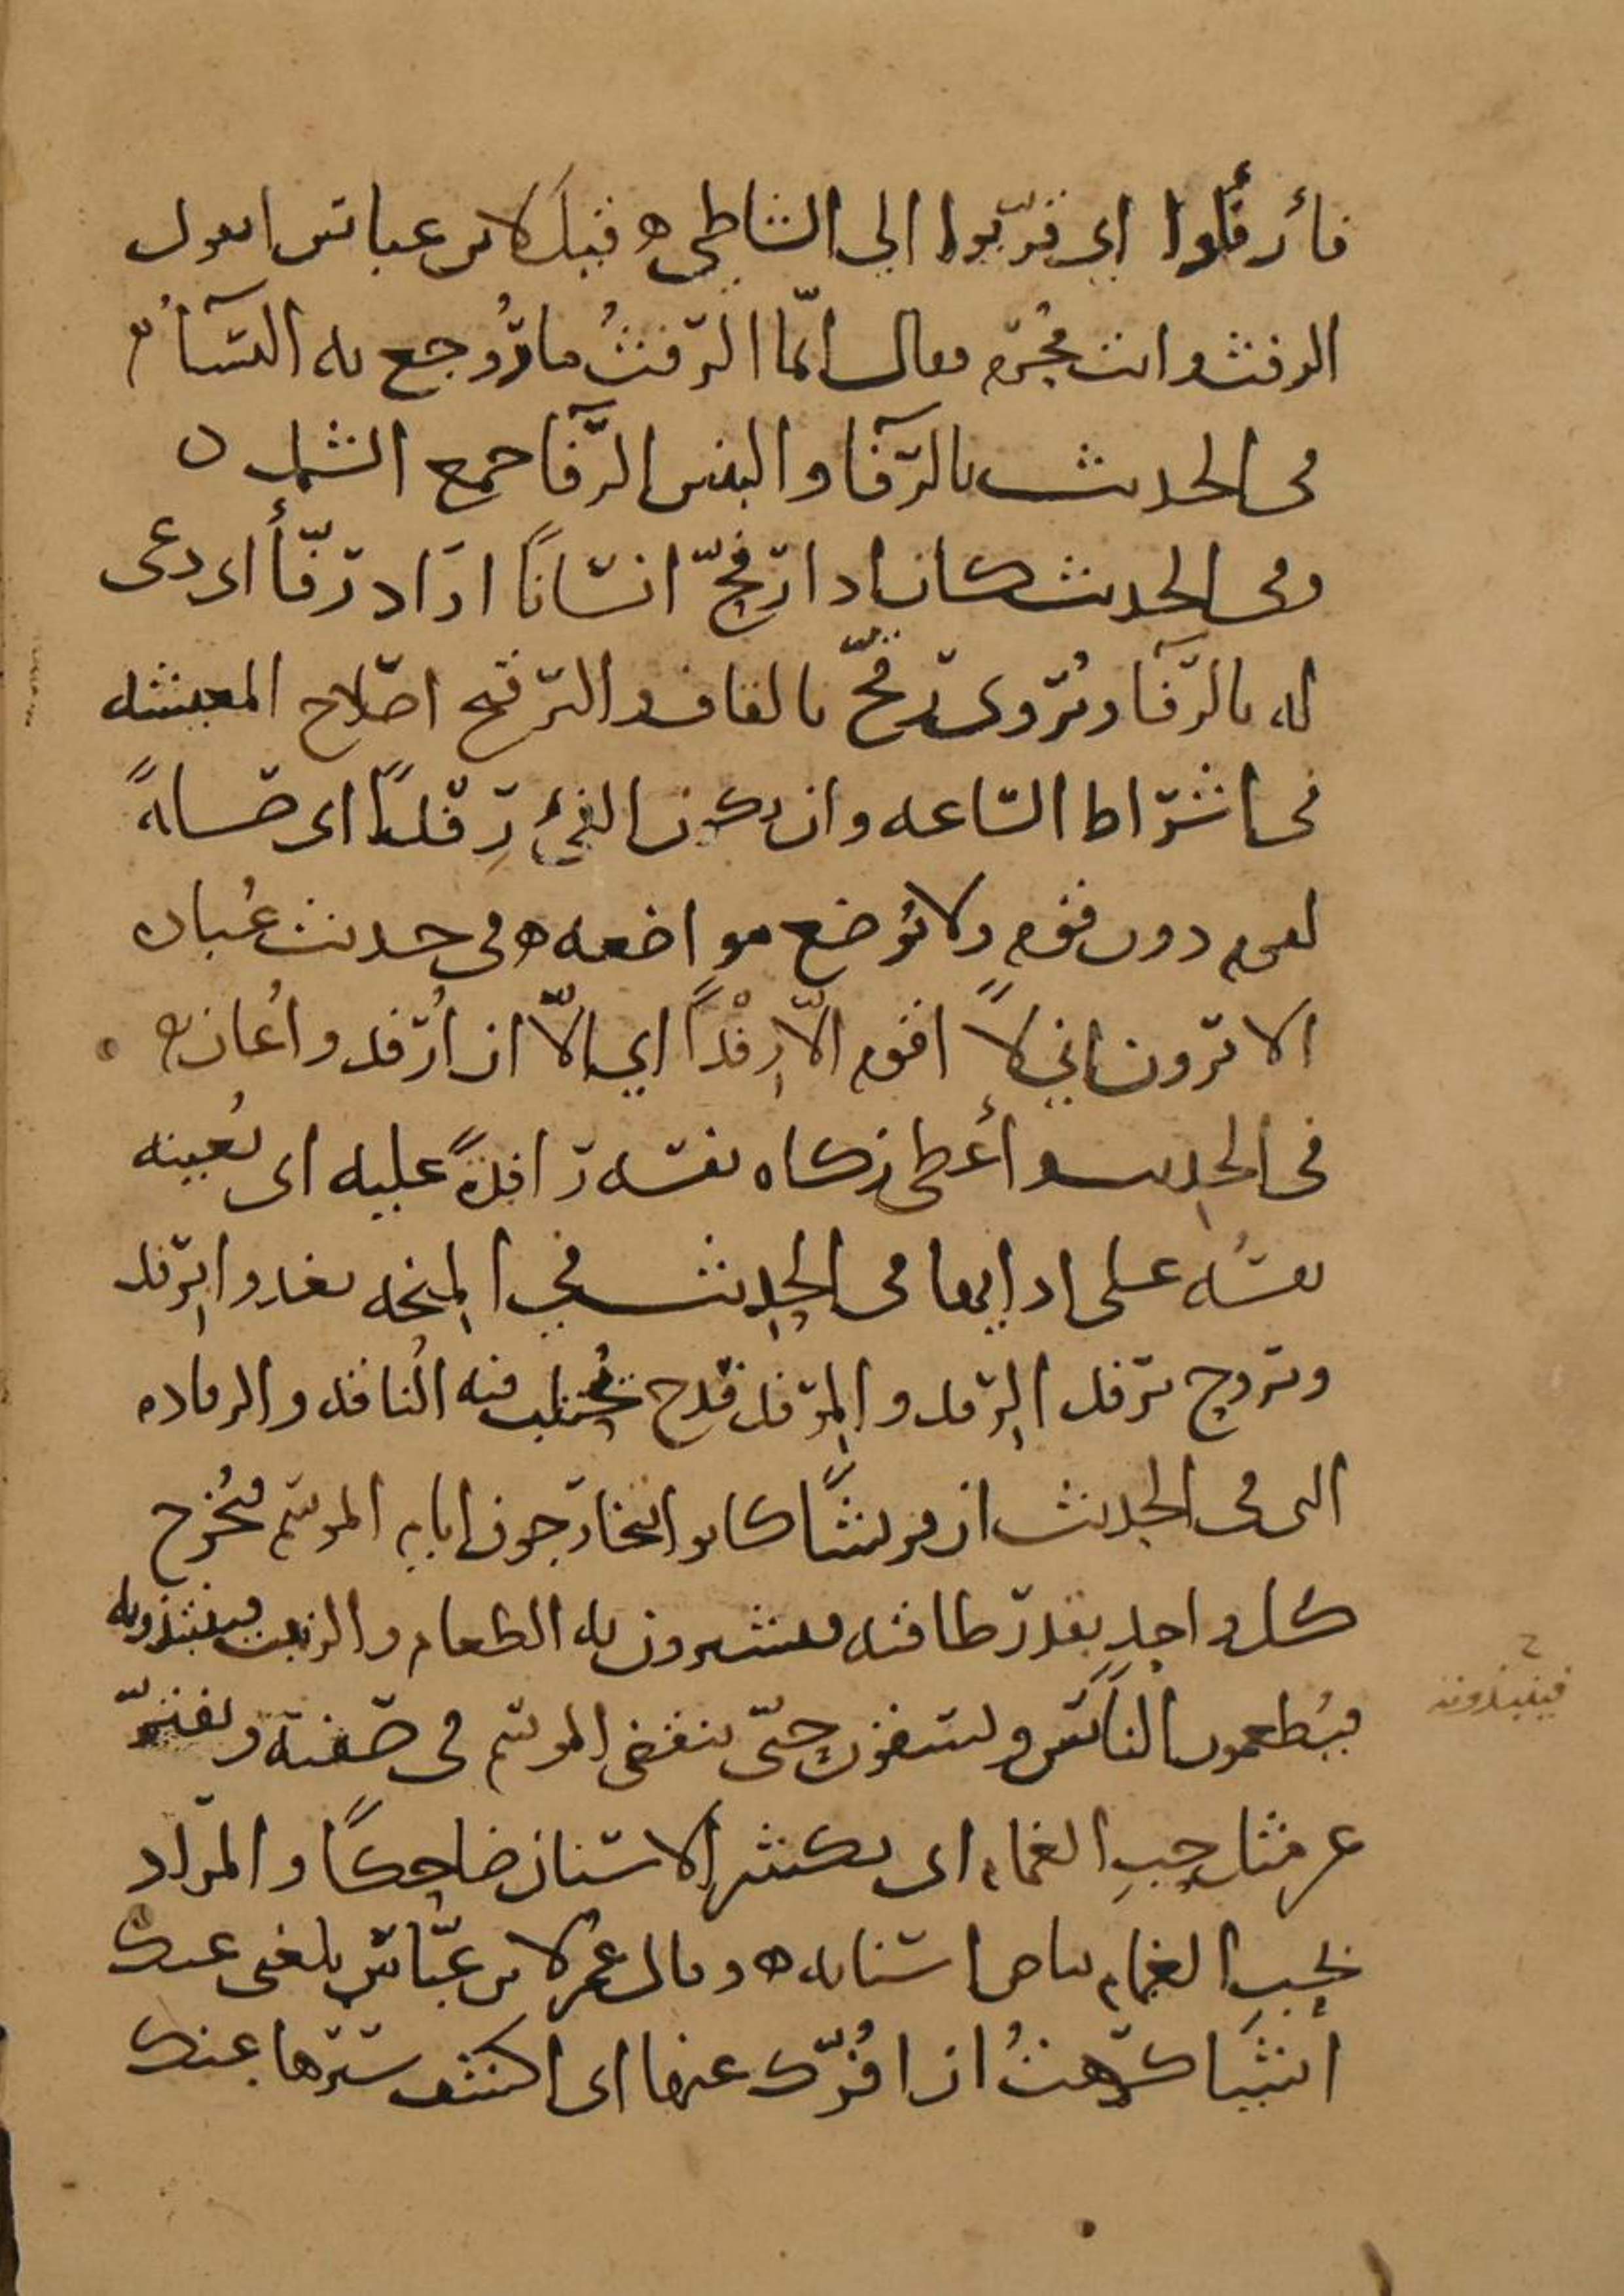 فأرفأوا اي قربوا الي الشاطي ه قيل لابن عباس اتقول
الرفث وانت محرم فقال انما الرفث ما رُوجع به النسآءُ
في الحديث بالرفآ والبنين الرفآ جمع الشمل ه
وفي الحديث كان اذا رفّح انسانًا اراد رفّأ اي دعى
له بالرفآ ويُروى رقّح بالقاف والترقيح اصلاح المعيشه
في اشراط الساعه وان يكون الفيءُ رِفدًا اي صلةً
لقوم دون قوم ولا يُوضع مواضعه ه في حديث عُباده
الا ترون اني لا اقوم الّا رِفْدًا اي الّا ان اُرفد واُعان ه
في الحديث وأعطى زكاه نفسه رافدةً عليه اي تُعينه
نفسُه على ادايها في الحديث في المِنحه تغدوا بِرفد
وتروح برفد الرِفد والمِرفد قدح تُحتلب فيه الناقه والرفاده
التي في الحديث ان قريشًا كانوا يتخارجون ايام الموسم فيُخرج
كل واحدٍ بقدر طاقته فيشترون به الطعام والزبيب فينتبذونه
فيُطعمون الناسَ ويسقون حتّى ينقضي الموسم في صفته ويفترّ
عن مثل حبِ الغمام اي يكشر الاسنان ضاحكًا والمراد
بحبِ الغمام بياض اسنانه ه وقال عمر لابن عبّاس بلغني عنك
اشيَا كرهتُ ان افُرّك عنها اي اكشف سترها عنك
ح
فينبذونه